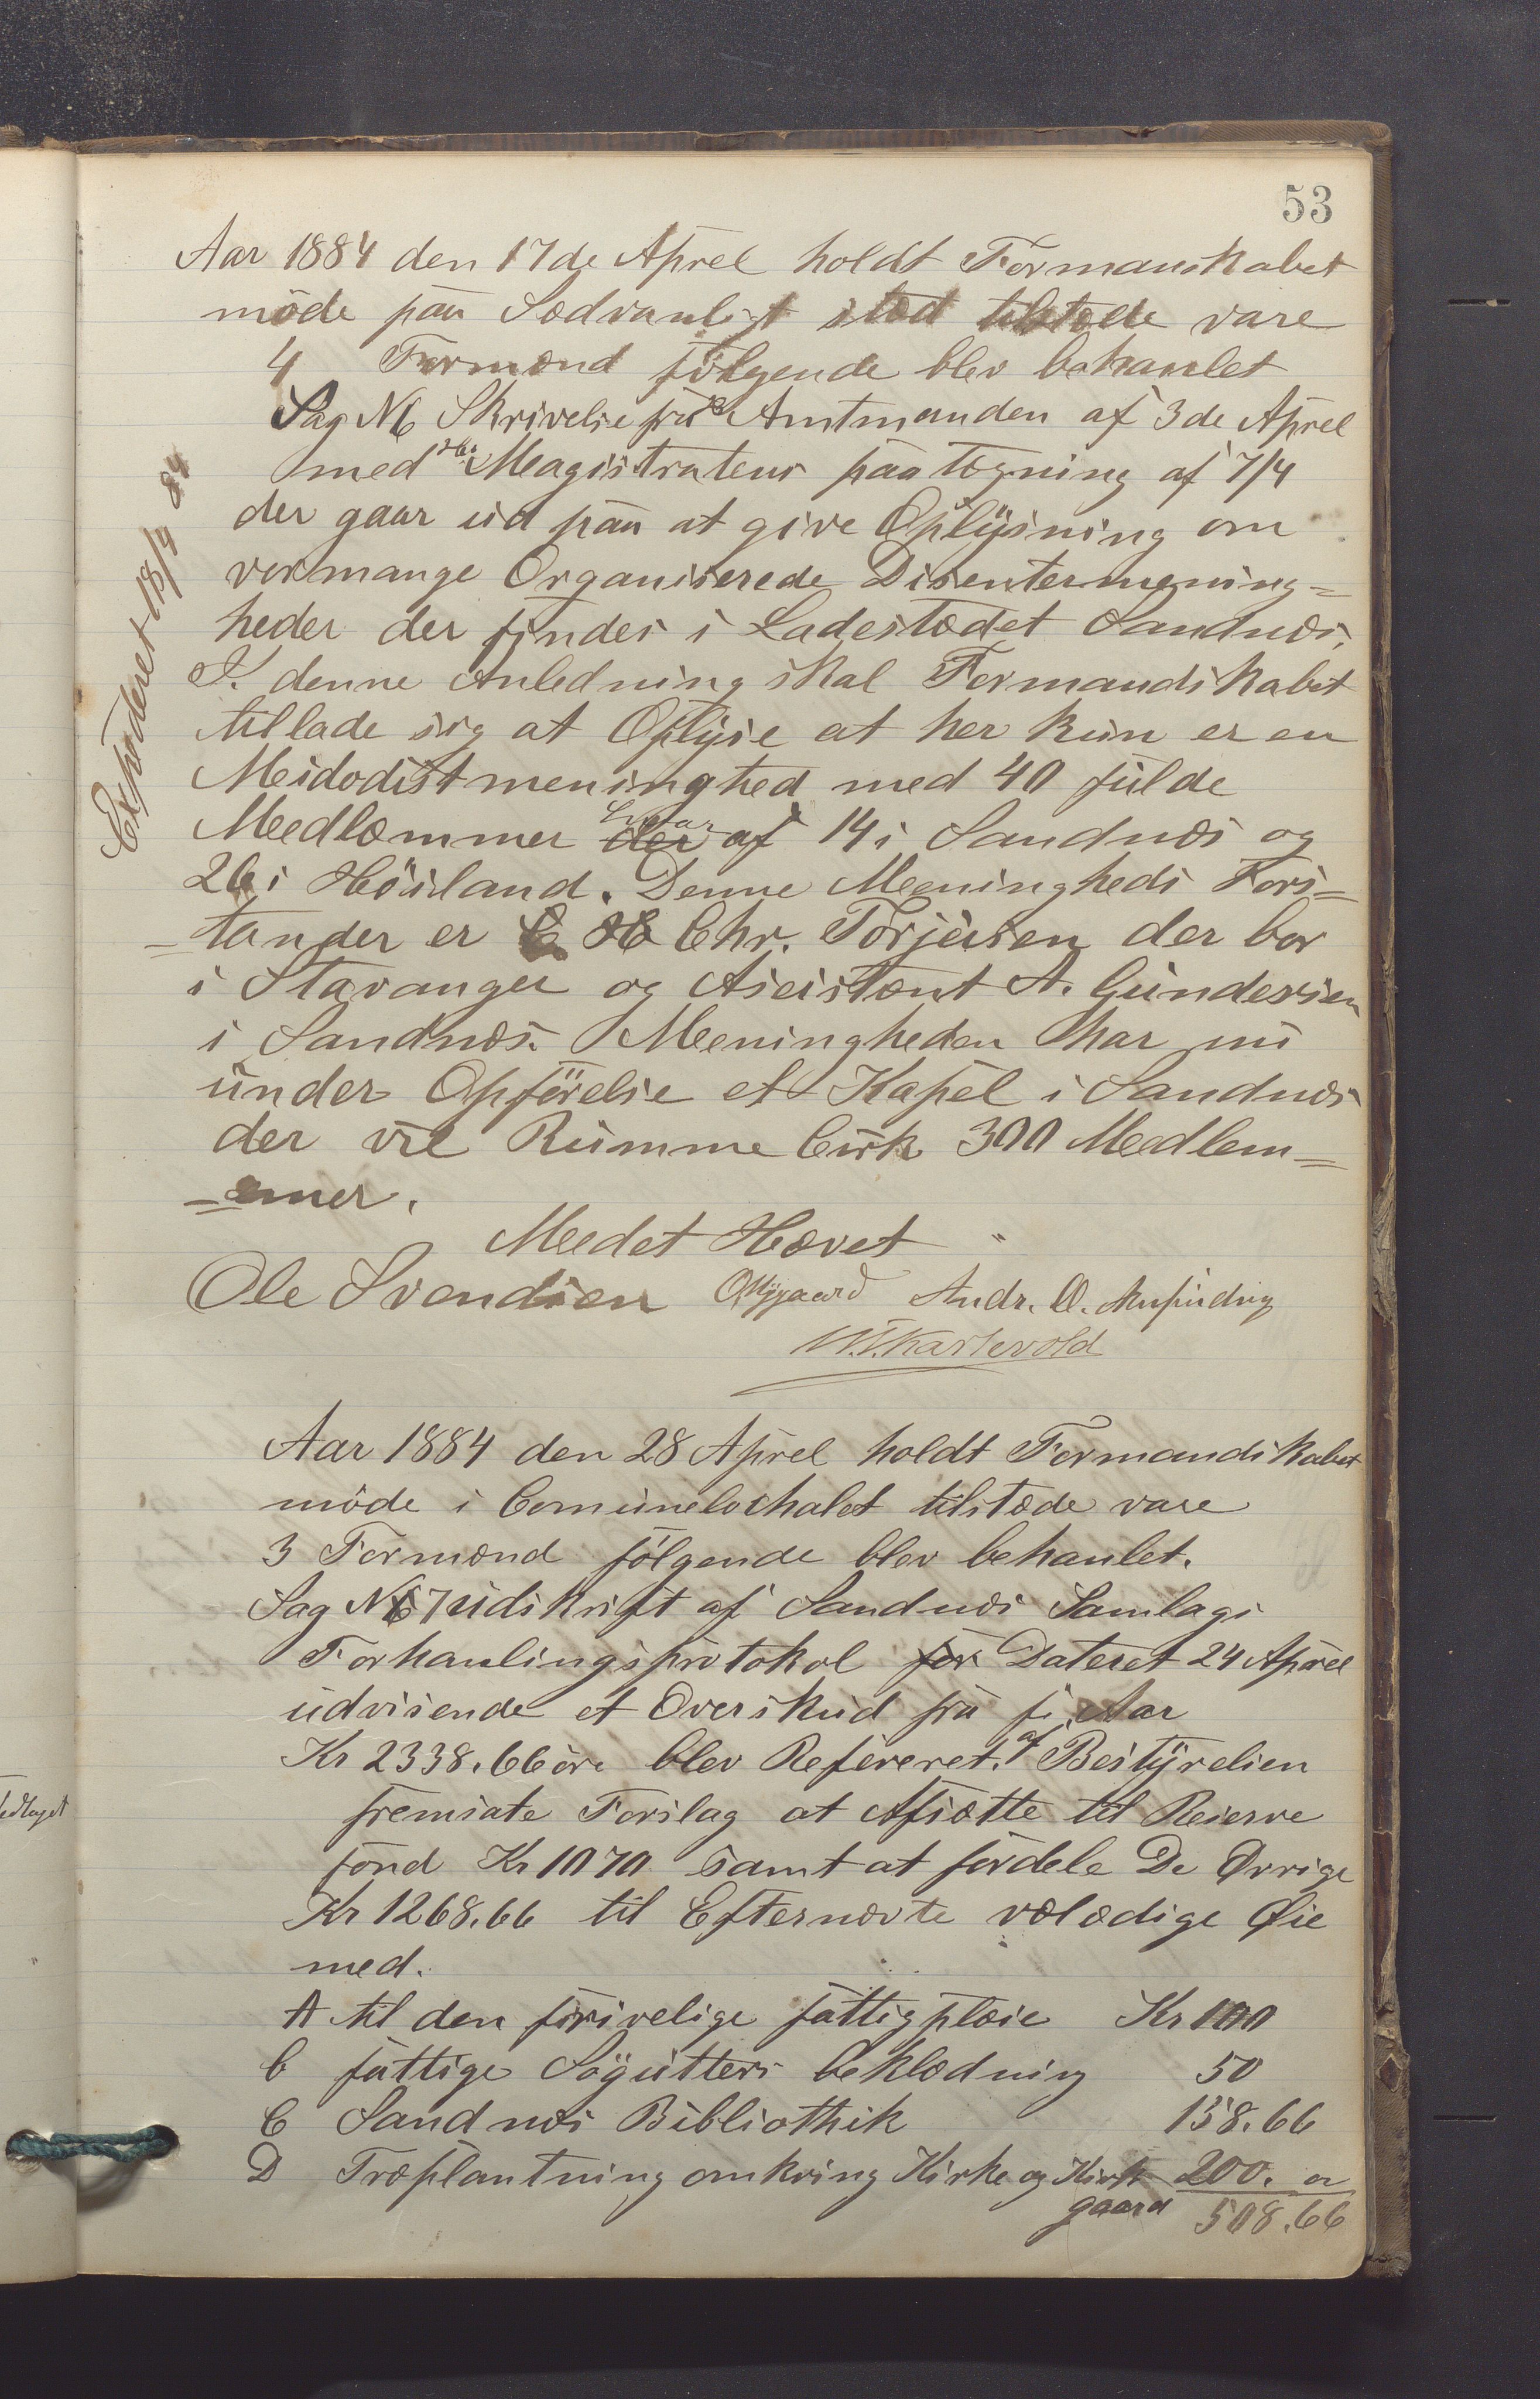 53
Aar 1884 den 17de Aprel holdt Formanskabet
møde paa Sædvanligt stæd tilstæde vare
4 Formænd følgende blev behanlet
Sag N 6 Skrivelse fra Amtmanden af 3de Aprel
med Magistratens paategning af 7/4
der gaar ud paa at give Oplysning om
vormange Organiserede Disentermening=
heder der findes i Ladestædet Sandnæs.
I denne Anledning skal Formandskabet
tillade sig at Oplyse at her kun er en
Meidodistmeninghed med 40 fulde
Medlæmmer der af 14 i Sandnæs og
26 i Høisland. Denne Meeningheds Fors=
=tander er Chr. Torjusen der bor
i Stavanger og Asistent A. Gundersen
i Sandnæs. Meeningheden har nu
under Opførelse et Kapel i Sandnæs
der vil Rumme Cirk 300 Medlem=
=mer.
Mødet Hævet
Ole Svendsen Andr. O.
Karlevold
Expederet 18/4 84
Aar 1884 den 28 Aprel holdt Formandskabet
møde i Comunelochalet tilstæde vare
3 Formænd følgende blev behanlet.
Sag N 7 udskrift af Sandnæs Samlags
Forhanlingsprotokol for Dateret 24 Aprel
udvisende et Overskud fra f. Aar
Kr 2338.66 øre blev Refereret. af Bestyrelsen
fremsate Forslag at Afsætte til Reserve
fond Kr 1070 samt at fordele De Øvrige
Kr 1268.66 til Efternævte vælædige Øie
med.
A til den frivelige fattigpleie Kr 100
b fattige Søgutters beklædning 50
C Sandnæs Bibliothik 158.66
D Træplantning omkring Kirke og Kirk 200.
gaard 508.66